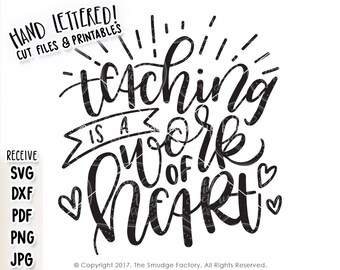 HAND LETTERED!
CUT FILES & PRINTABLES
teaching
IS A
work
OF
heart
RECEIVE
SVG
DXF
PDF
PNG
JPG
© Copyright 2017, The Smudge Factory, All Rights Reserved.